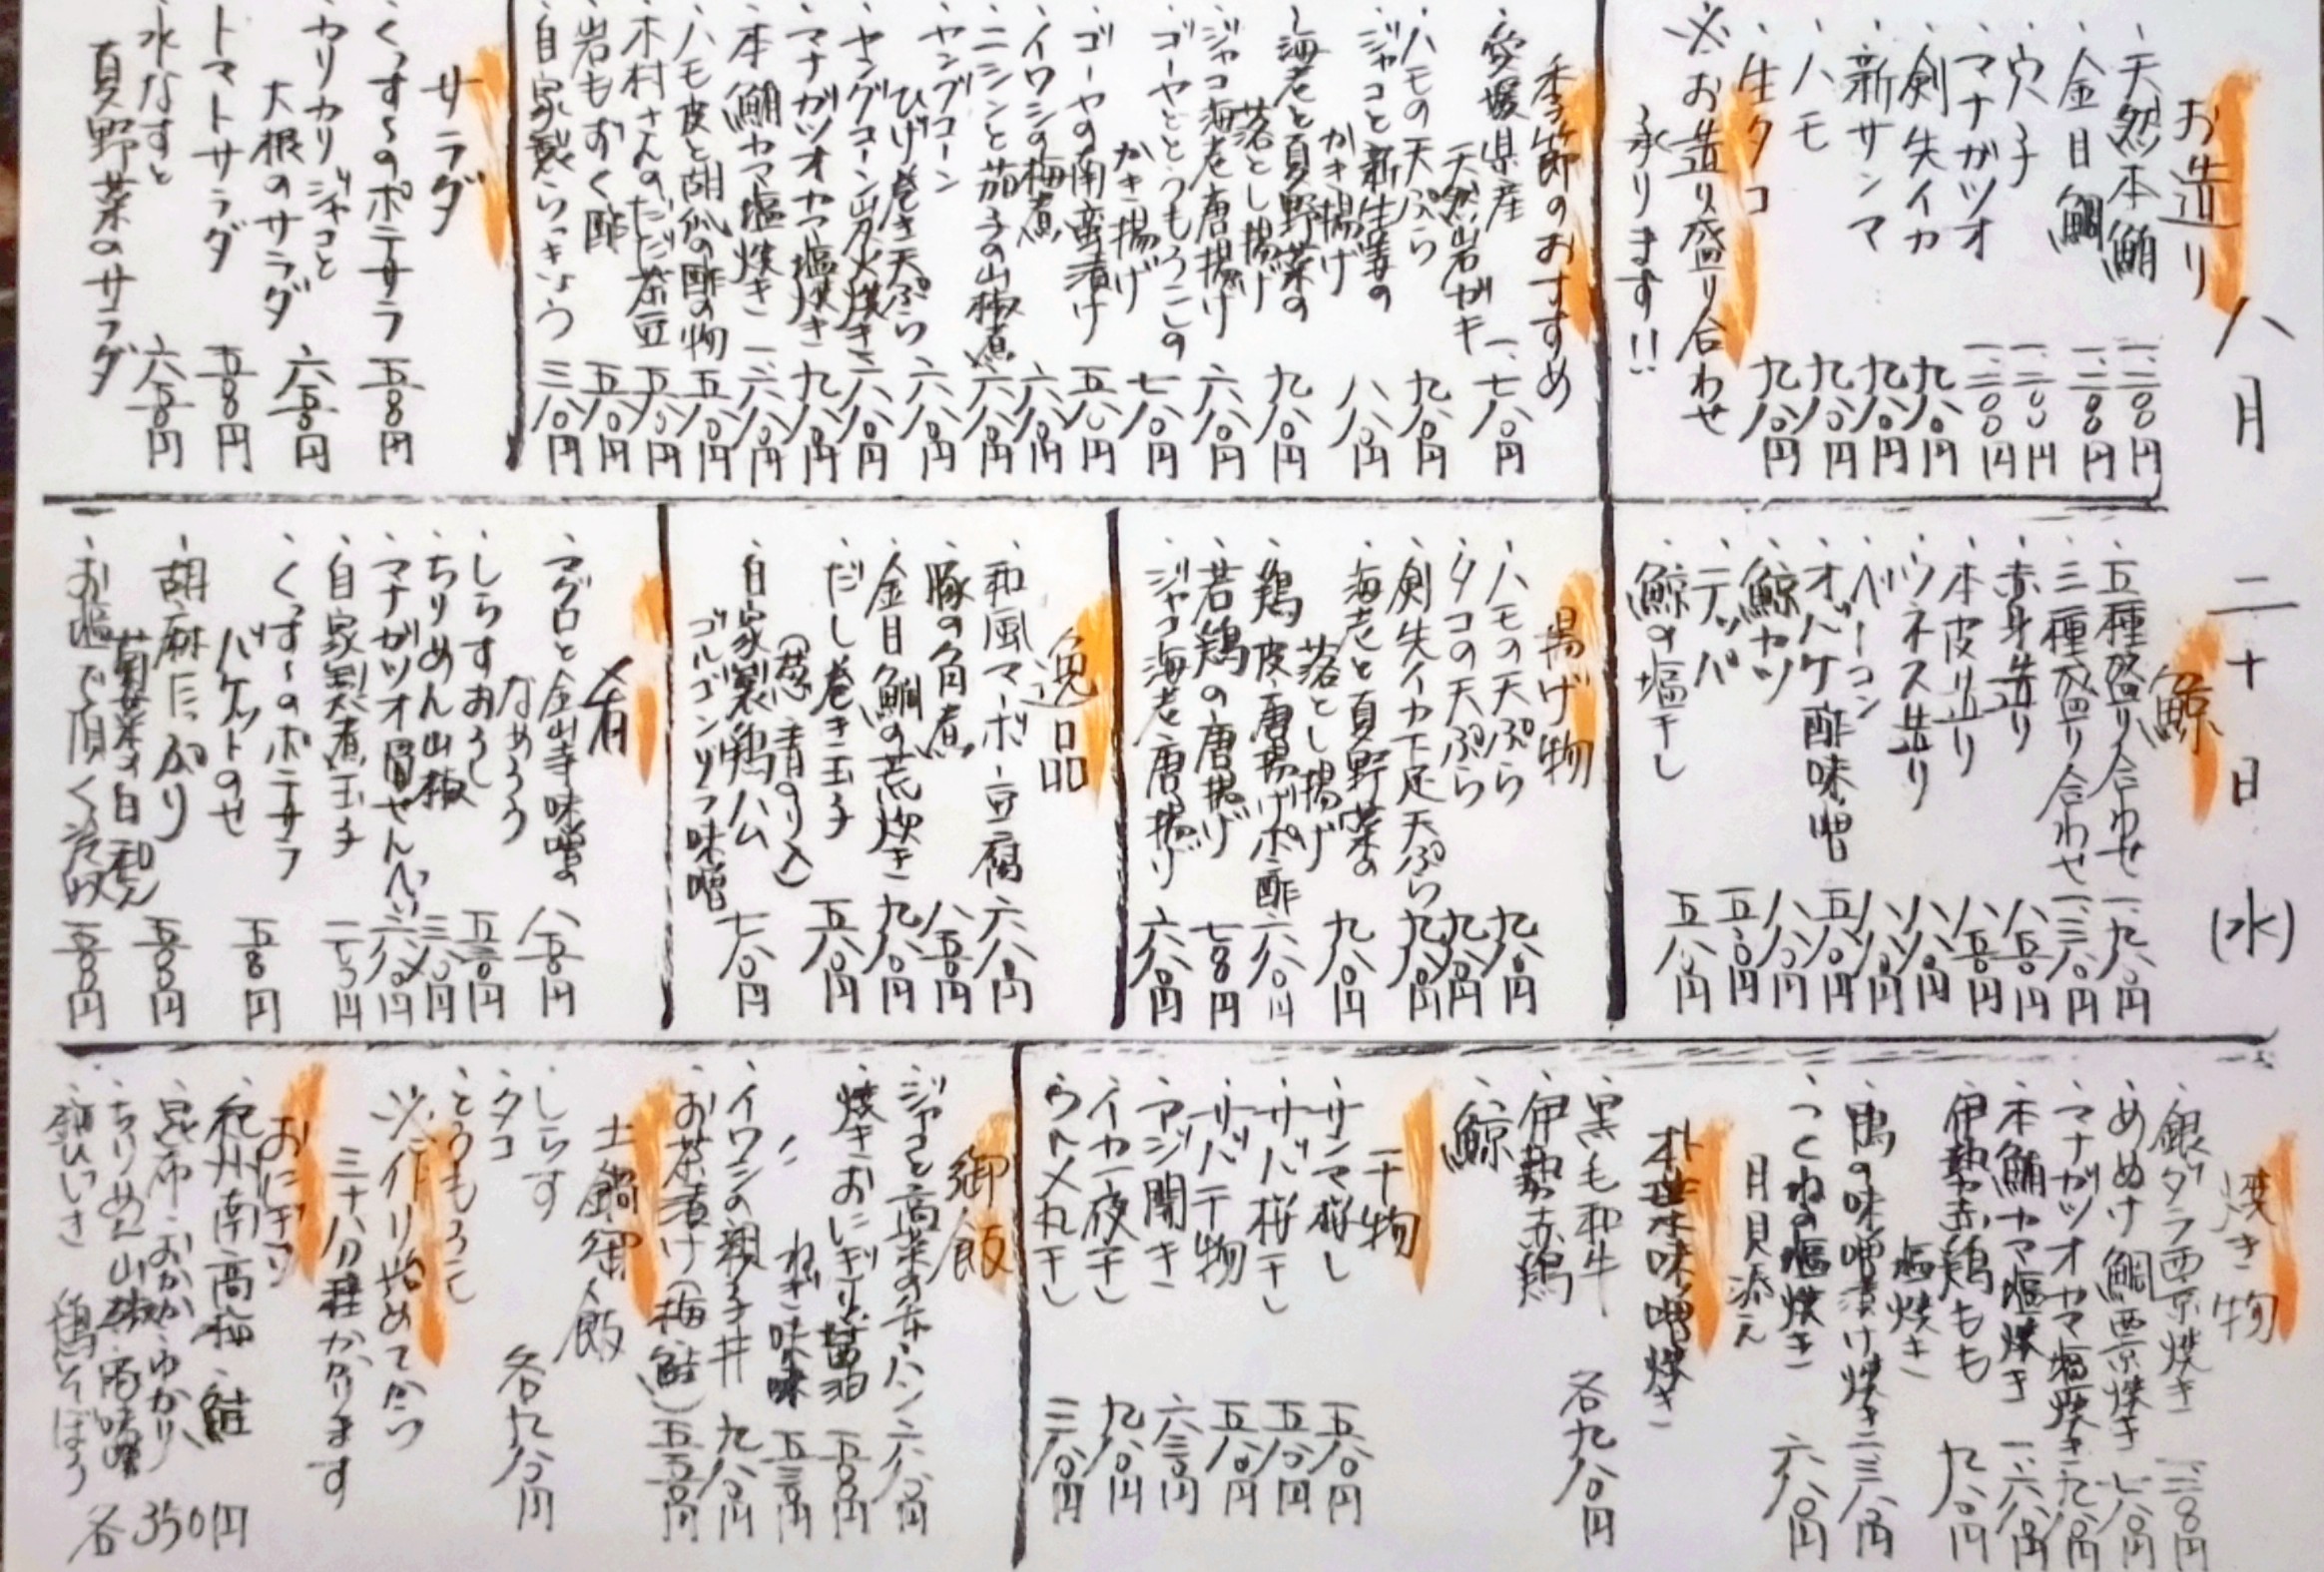 八月二十日(水)
お造り
・天然本鮪 一、二〇〇円
・金目鯛 一、二〇〇円
・穴子 一、二〇〇円
・マナガツオ 一、二〇〇円
・剣先イカ 九八〇円
・新サンマ 九八〇円
・ハモ 九八〇円
・生タコ 九八〇円
※お造り盛り合わせ
承ります!!
季節のおすすめ
・愛媛県産
天然岩ガキ 一、七八〇円
・ハモの天ぷら 九八〇円
・ジャコと新生姜の
かき揚げ 八八〇円
・海老と夏野菜の
落とし揚げ 九八〇円
・ジャコ海老唐揚げ 六八〇円
・ゴーヤととうもろこしの
かき揚げ 七八〇円
・ゴーヤの南蛮漬け 五八〇円
・イワシの梅煮 六八〇円
・ニシンと茄子の山椒煮 六八〇円
・ヤングコーン
ひげ巻き天ぷら 六八〇円
・ヤングコーン炭火焼き 六八〇円
・マナガツオカマ塩焼き 九八〇円
・本鮪カマ塩焼き 一、六八〇円
・ハモ皮と胡瓜の酢の物 五八〇円
・木村さんのだだ茶豆 五八〇円
・岩もずく酢 五八〇円
・自家製らっきょう 三八〇円
サラダ
・くっす〜のポテサラ 五八〇円
・カリカリジャコと
大根のサラダ 六五〇円
・トマトサラダ 五八〇円
・水なすと
夏野菜のサラダ 六五〇円
鯨
・五種盛り合わせ 一、九八〇円
・三種盛り合わせ 一、三八〇円
・赤身造り 八五〇円
・本皮造り 八五〇円
・ウネス造り 八八〇円
・ベーコン 八八〇円
・オバケ酢味噌 五八〇円
・鯨カツ 八八〇円
・テッパ
・鯨の塩干し 五八〇円
揚げ物
・ハモの天ぷら 九八〇円
・タコの天ぷら 九八〇円
・剣先イカ下足天ぷら 九八〇円
・海老と夏野菜の
落とし揚げ 九八〇円
・鶏皮唐揚げポン酢 六八〇円
・若鶏の唐揚げ 七八〇円
・ジャコ海老唐揚げ 六八〇円
逸品
・和風マーボー豆腐 六八〇円
・豚の角煮 八五〇円
・金目鯛の荒炊き 九八〇円
・だし巻き玉子
(葱、青のり入) 五八〇円
・自家製鴨ハム
ゴルゴンゾーラ味噌 七八〇円
肴
・マグロと金山寺味噌の
なめろう 八五〇円
・しらすおろし 五三〇円
・ちりめん山椒 三八〇円
・マナガツオ骨せんべい
・自家製煮玉子
・くっす〜のポテサラ
バケットのせ
・胡麻たっぷり
菊菜の白和え 五五〇円
・お塩で頂く冷奴 五五〇円
焼き物
・銀ダラ西京焼き
・めぬけ鯛西京焼き 七八〇円
・マナガツオカマ塩焼き 九八〇円
・本鮪カマ塩焼き 一、六八〇円
・伊勢赤鶏もも
塩焼き 九八〇円
・鴨の味噌漬け焼き
・つくねの塩焼き
月見添え 六八〇円
朴葉味噌焼き
・黒毛和牛
・伊勢赤鶏
・鯨
各九八〇円
干物
・サンマ桜干し 五八〇円
・サバ桜干し 五八〇円
・サバ干物 五八〇円
・アジ開き 六三〇円
・イカ一夜干し 九八〇円
・ウルメ丸干し 三八〇円
御飯
・ジャコと高菜の チャーハン 六八〇円
・焼きおにぎり 醤油 五〇〇円
・〃 ねぎ味噌 五三〇円
・イワシの親子丼 九八〇円
・お茶漬け(梅、鮭) 五五〇円
土鍋御飯
・しらす
・タコ
・とうもろこし
各九八〇円
※作り始めてから
三十八分程かかります
おにぎり
・紀州南高梅・鮭
・昆布・おかか・ゆかり
・ちりめん山椒・豚味噌
・鶏そぼろ
各350円